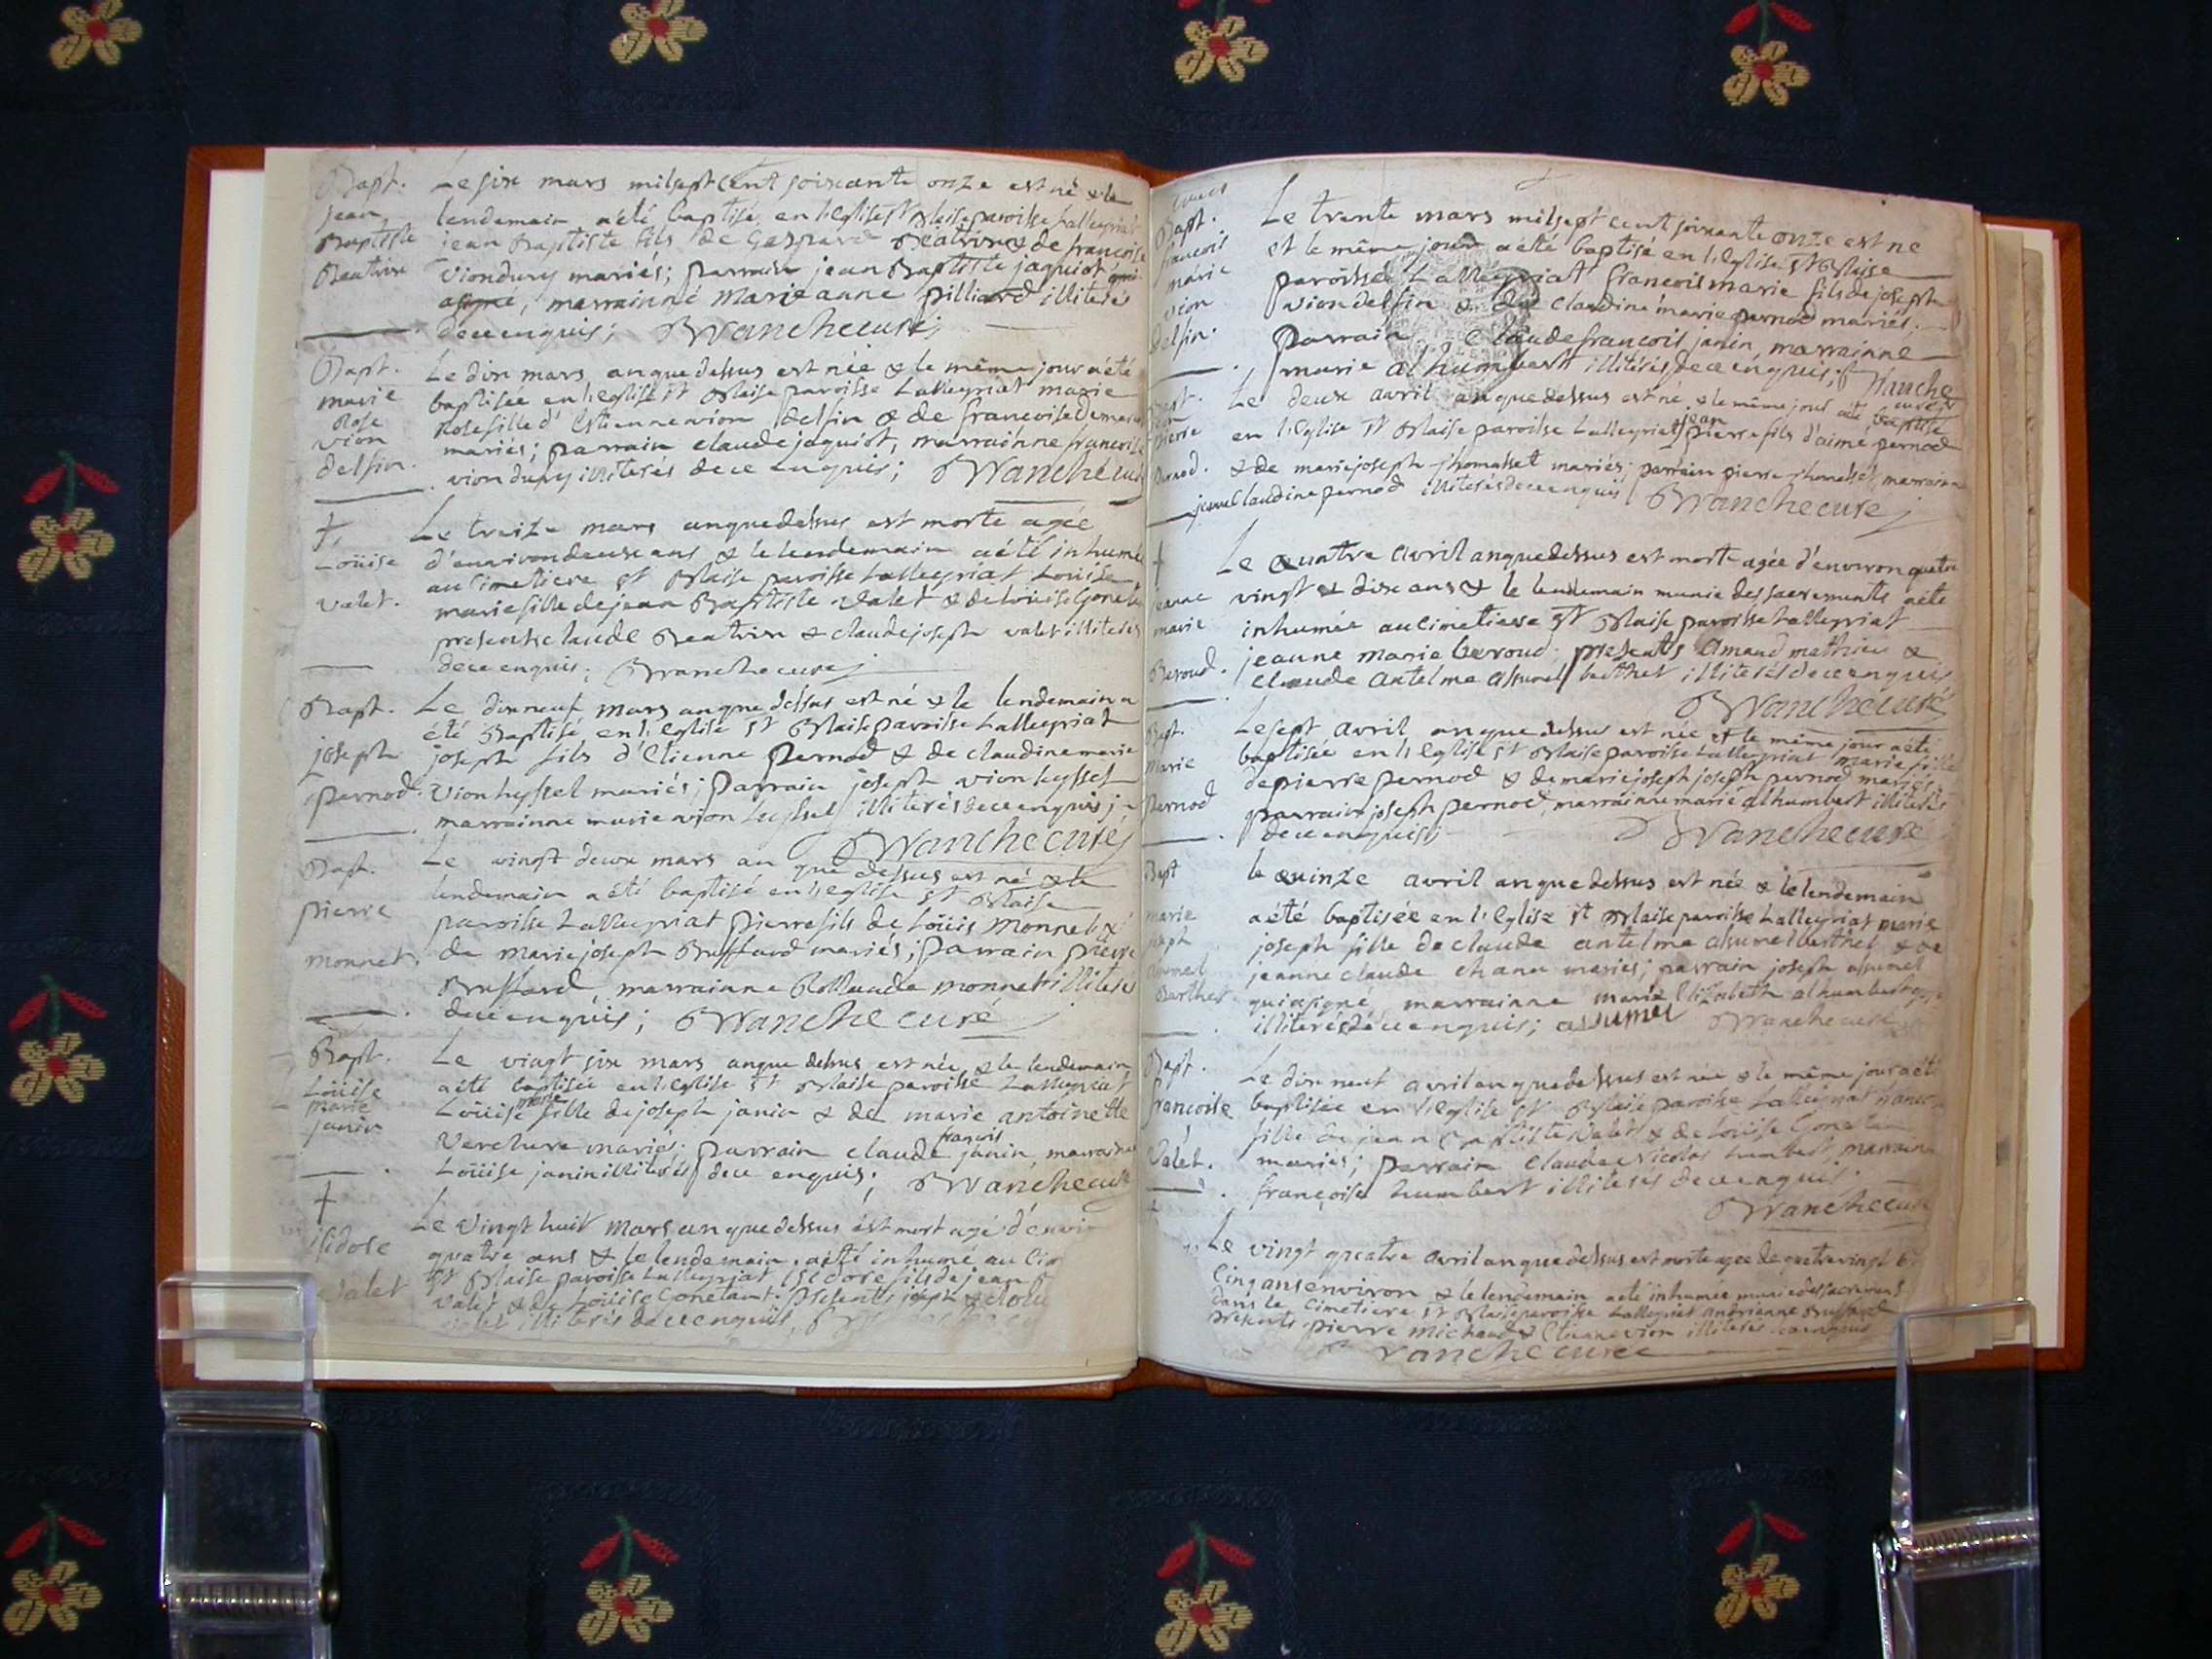 Bapt.
jean
Baptiste
Beatrix
Le six mars milsept cent soixante onze est né & le
lendemain a été baptisé en l'Eglise St Blaise paroisse Lalleyriat
jean Baptiste fils de Gaspard Béatrix & de francoise
Viondury mariés; parrain jean Baptiste jaquiot qui
a signé, marrainne Marie anne pilliard illiterés
dece enquis; Blanche curé
Bapt.
marie
Rose
vion
delfin.
Le dix mars anquedessus est née & le même jour a été
baptisée en l'eglise St Blaise paroisse Lalleyriat marie
Rose fille d'Estienne vion delfin & de francoise
mariés; parrain claude jaquiot, marrainne francoise
vion dury illiterés dece enquis; Blanche curé
†
Loüise
valet.
Le treize mars anquedessus est morte agée
d'environ deux ans & le lendemain a été inhumée
au cimetiere St Blaise paroisse Lalleyriat Loüise
marie fille de jean Baptiste Valet & de Loüise Gonetan
presents claude Beatrix & claude joseph valet illiterés
dece enquis; Blanche curé
Bapt.
joseph
pernod.
Le dix neuf mars anque dessus est né & le lendemain a
été Baptisé en l'eglise St Blaise paroisse Lalleyriat
joseph fils d'Etienne Pernod & de claudine marie
vion hyssel mariés; Parrain joseph vion hyssel
marrainne marie vion hyssel illiterés dece enquis;
Blanche curé
Bapt.
pierre
monnet.
Le vingt deux mars an que dessus est né & le
lendemain a été baptisé en l'eglise St Blaise
paroisse Lalleyriat Pierre fils de Loüis Monnet &
de marie joseph Buffard mariés; parrain pierre
Buffard, marrainne Rollande monnet illiterés
dece enquis; Blanche curé
Bapt.
Loüise
marie
janin
Le vingt six mars anque dessus est née & le lendemain
a été baptisée en l'eglise St Blaise paroisse Lalleyriat
Loüise marie fille de joseph janin & de marie antoinette
Verchere mariés; parrain claude francois janin, marrainne
Loüise janin illiterés dece enquis; Blanche curé
†
isidore
Valet
Le vingt huit mars anquedessus est mort agé d'enviro
quatre ans & le lendemain a été inhumé au Cim
St Blaise paroisse Lalleyriat isidore fils de jean B
valet & de Loüise Gonetant. presents joseph & claude
valet illiterés dece enquis,
Bapt.
francois
marie
vion
delfin.
Le trente mars milsept cent soixante onze est né
et le même jour a été baptisé en l'Eglise St Blaise
paroisse Lalleyriat francois marie fils de joseph
vion delfin & de claudine marie pernod mariés.
Parrain claude francois janin, marrainne
marie alhumbert illiterés dece enquis; Blanche
curé
Bapt.
jean
pierre
Pernod.
Le deux avril anquedessus est né & le même jour a été baptisé
en l'Eglise St Blaise paroisse Lalleyriat jean pierre fils d'aimé pernod
& de marie joseph thomasset mariés; parrain pierre thomasset, marrainne
jeanne claudine pernod illiterés dece enquis Blanche curé
†
jeanne
marie
Beroud.
Le quatre avril anquedessus est morte agée d'environ quatre
vingt & dix ans & le lendemain munie des sacrements a été
inhumée au cimetiere St Blaise paroisse Lalleyriat
jeanne marie beroud; presents Amand mathieu &
claude Antelme assumel berthet illiterés dece enquis
Blanche curé
Bapt.
Marie
Pernod
Le sept avril anque dessus est née et le même jour a été
baptisée en l'Eglise St Blaise paroisse Lalleyriat marie fille
de pierre pernod & de marie joseph joseph pernod mariés.
parrain joseph pernod, marrainne marie alhumbert illiterés
dece enquis; Blanche curé
Bapt
marie
joseph
assumel
Berthet.
le quinze avril anquedessus est née & le lendemain
a été baptisée en l'Eglise St Blaise paroisse Lalleyriat marie
joseph fille de claude antelme assumel berthet & de
jeanne claude chana mariés; parrain joseph assumel
qui a signé, marrainne marie Elizabeth alhumbert
illiterés dece enquis; assumel Blanche curé
Bapt.
françoise
Valet.
Le dix neuf avril anquedessus est née & le même jour a été
baptisée en l'eglise St Blaise paroisse Lalleyriat franco
fille de jean Baptiste valet & de Loüise Gonetan
mariés; parrain Claude Nicolas humbert, marrainne
françoise humbert illiterés dece enquis.
Blanche curé
†
Le vingt quatre avril anquedessus est morte agée de quatre vingt
Cinq ans environ & le lendemain a été inhumée munie des sacremens
dans le cimetiere St Blaise paroisse Lalleyriat andrianne Buffard
presents pierre michaud & Etienne vion illiterés enquis
Blanche curé